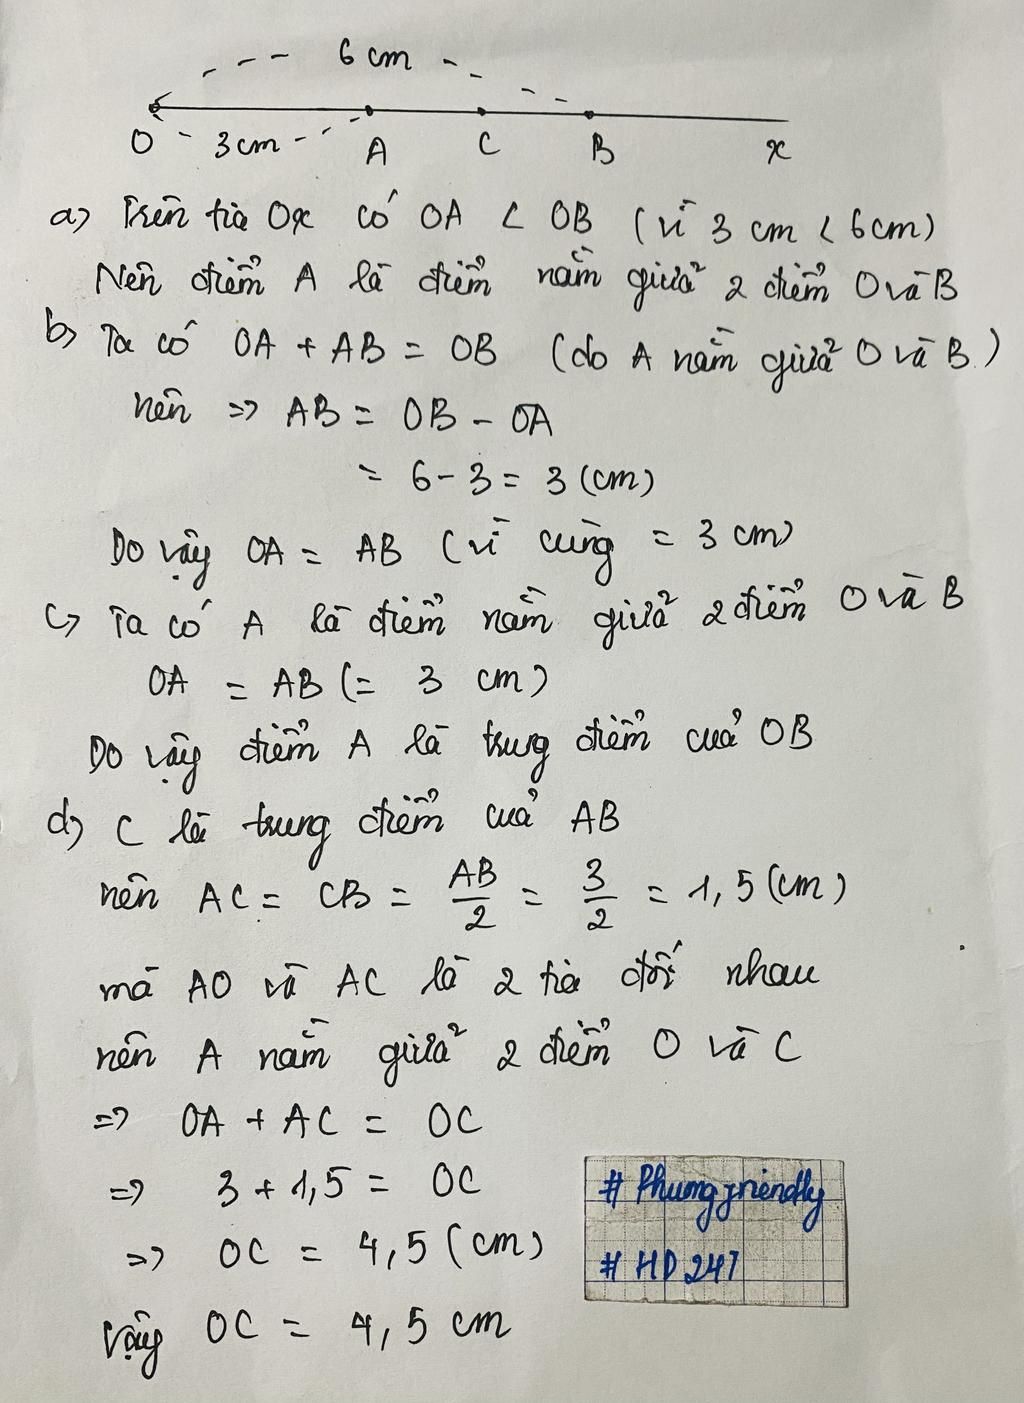 6 cm
O 3 cm A C B x
a) Trên tia Ox có OA < OB (vì 3 cm < 6 cm)
Nên điểm A là điểm nằm giữa 2 điểm O và B
b) Ta có OA + AB = OB (do A nằm giữa O và B)
nên => AB = OB - OA
= 6 - 3 = 3 (cm)
Do vậy OA = AB (vì cùng = 3 cm)
c) Ta có A là điểm nằm giữa 2 điểm O và B
OA = AB (= 3 cm)
Do vậy điểm A là trung điểm của OB
d) C là trung điểm của AB
nên AC = CB = AB/2 = 3/2 = 1,5 (cm)
mà AO và AC là 2 tia đối nhau
nên A nằm giữa 2 điểm O và C
=> OA + AC = OC
=> 3 + 1,5 = OC
=> OC = 4,5 (cm)
Vậy OC = 4,5 cm
# Phungfriendly
# HD247